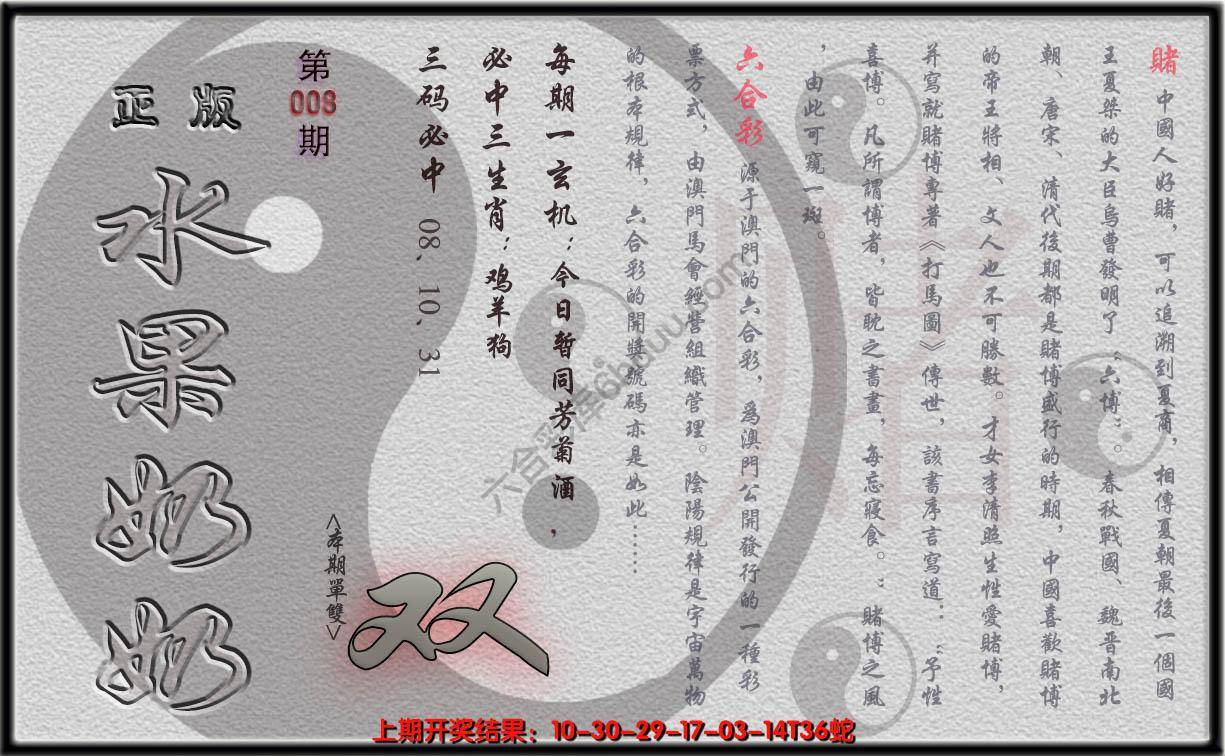 賭 中國人好賭，可以追溯到夏商，相傳夏朝最後一個國
王夏桀的大臣烏曹發明了“六博”。春秋戰國、魏晋南北
朝、唐宋、清代後期都是賭博盛行的時期，中國喜歡賭博
的帝王將相、文人也不可勝數。才女李清照生性愛賭博，
并寫就賭博專著《打馬圖》傳世，該書序言寫道：“予性
喜博。凡所謂博者，皆耽之書畫，每忘寢食。”賭博之風
，由此可窺一斑。
六合彩 源于澳門的六合彩，爲澳門公開發行的一種彩
票方式，由澳門馬會經營組織管理。陰陽規律是宇宙萬物
的根本規律，六合彩的開獎號碼亦是如此……
每期一玄机：今日暫同芳菊酒，
必中三生肖：鸡羊狗
三码必中 08、10、31
第
008
期
正版
水果奶奶
<本期單雙>
双
賭
上期开奖结果：10-30-29-17-03-14T36蛇